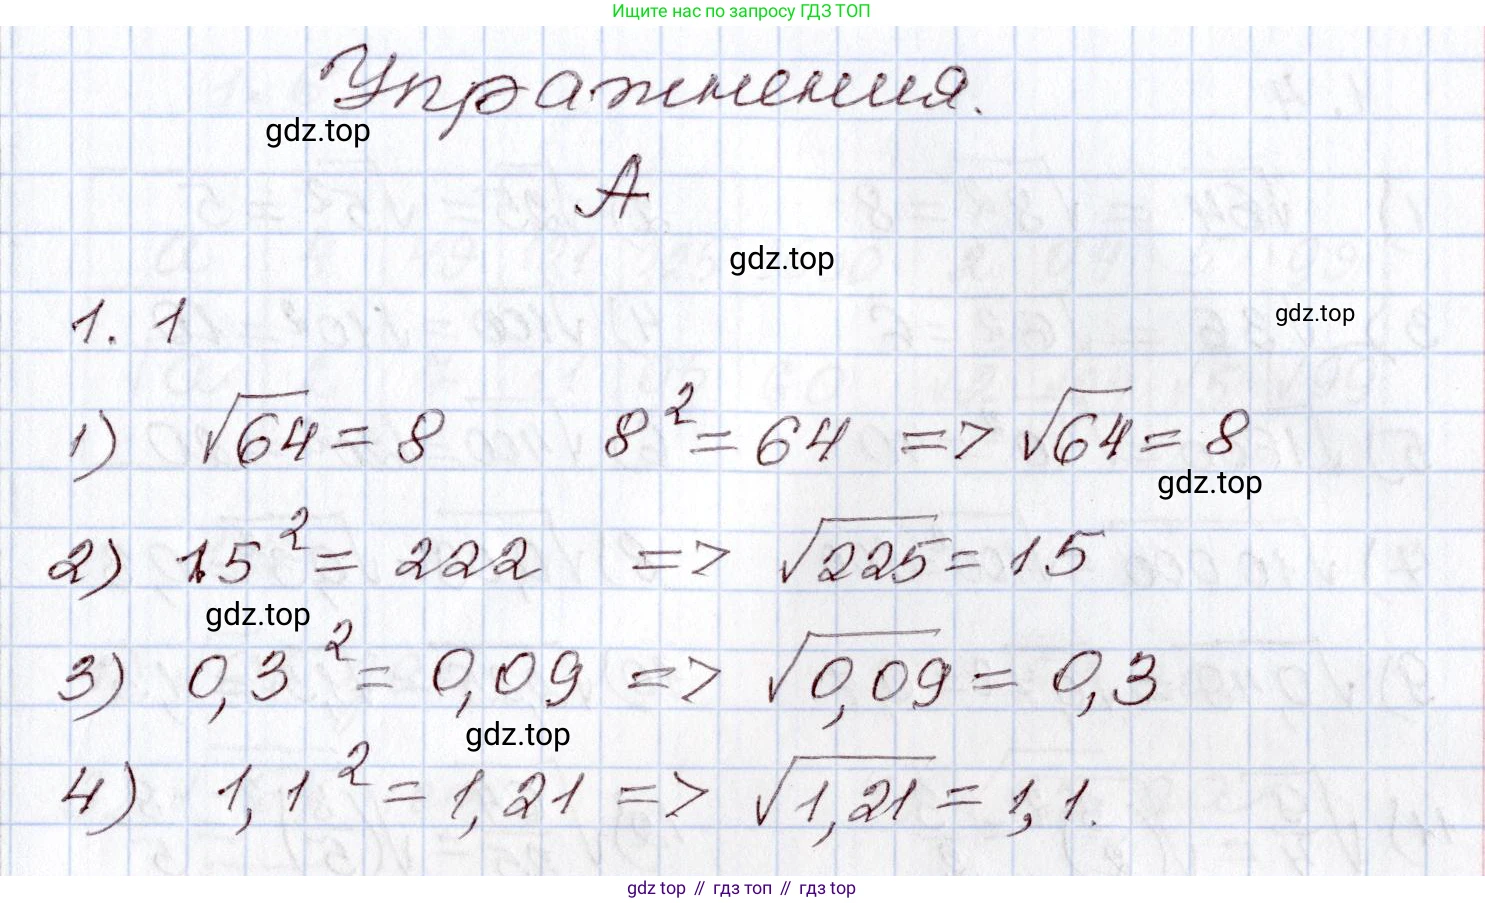 Ищите нас по запросу ГДЗ ТОП
Упражнения.
gdz.top
А
gdz.top
1. 1
gdz.top
1) √64 = 8 8² = 64 => √64 = 8
gdz.top
2) 15² = 222 => √225 = 15
gdz.top
3) 0,3² = 0,09 => √0,09 = 0,3
gdz.top
4) 1,1² = 1,21 => √1,21 = 1,1.
gdz top // гдз топ // гдз top